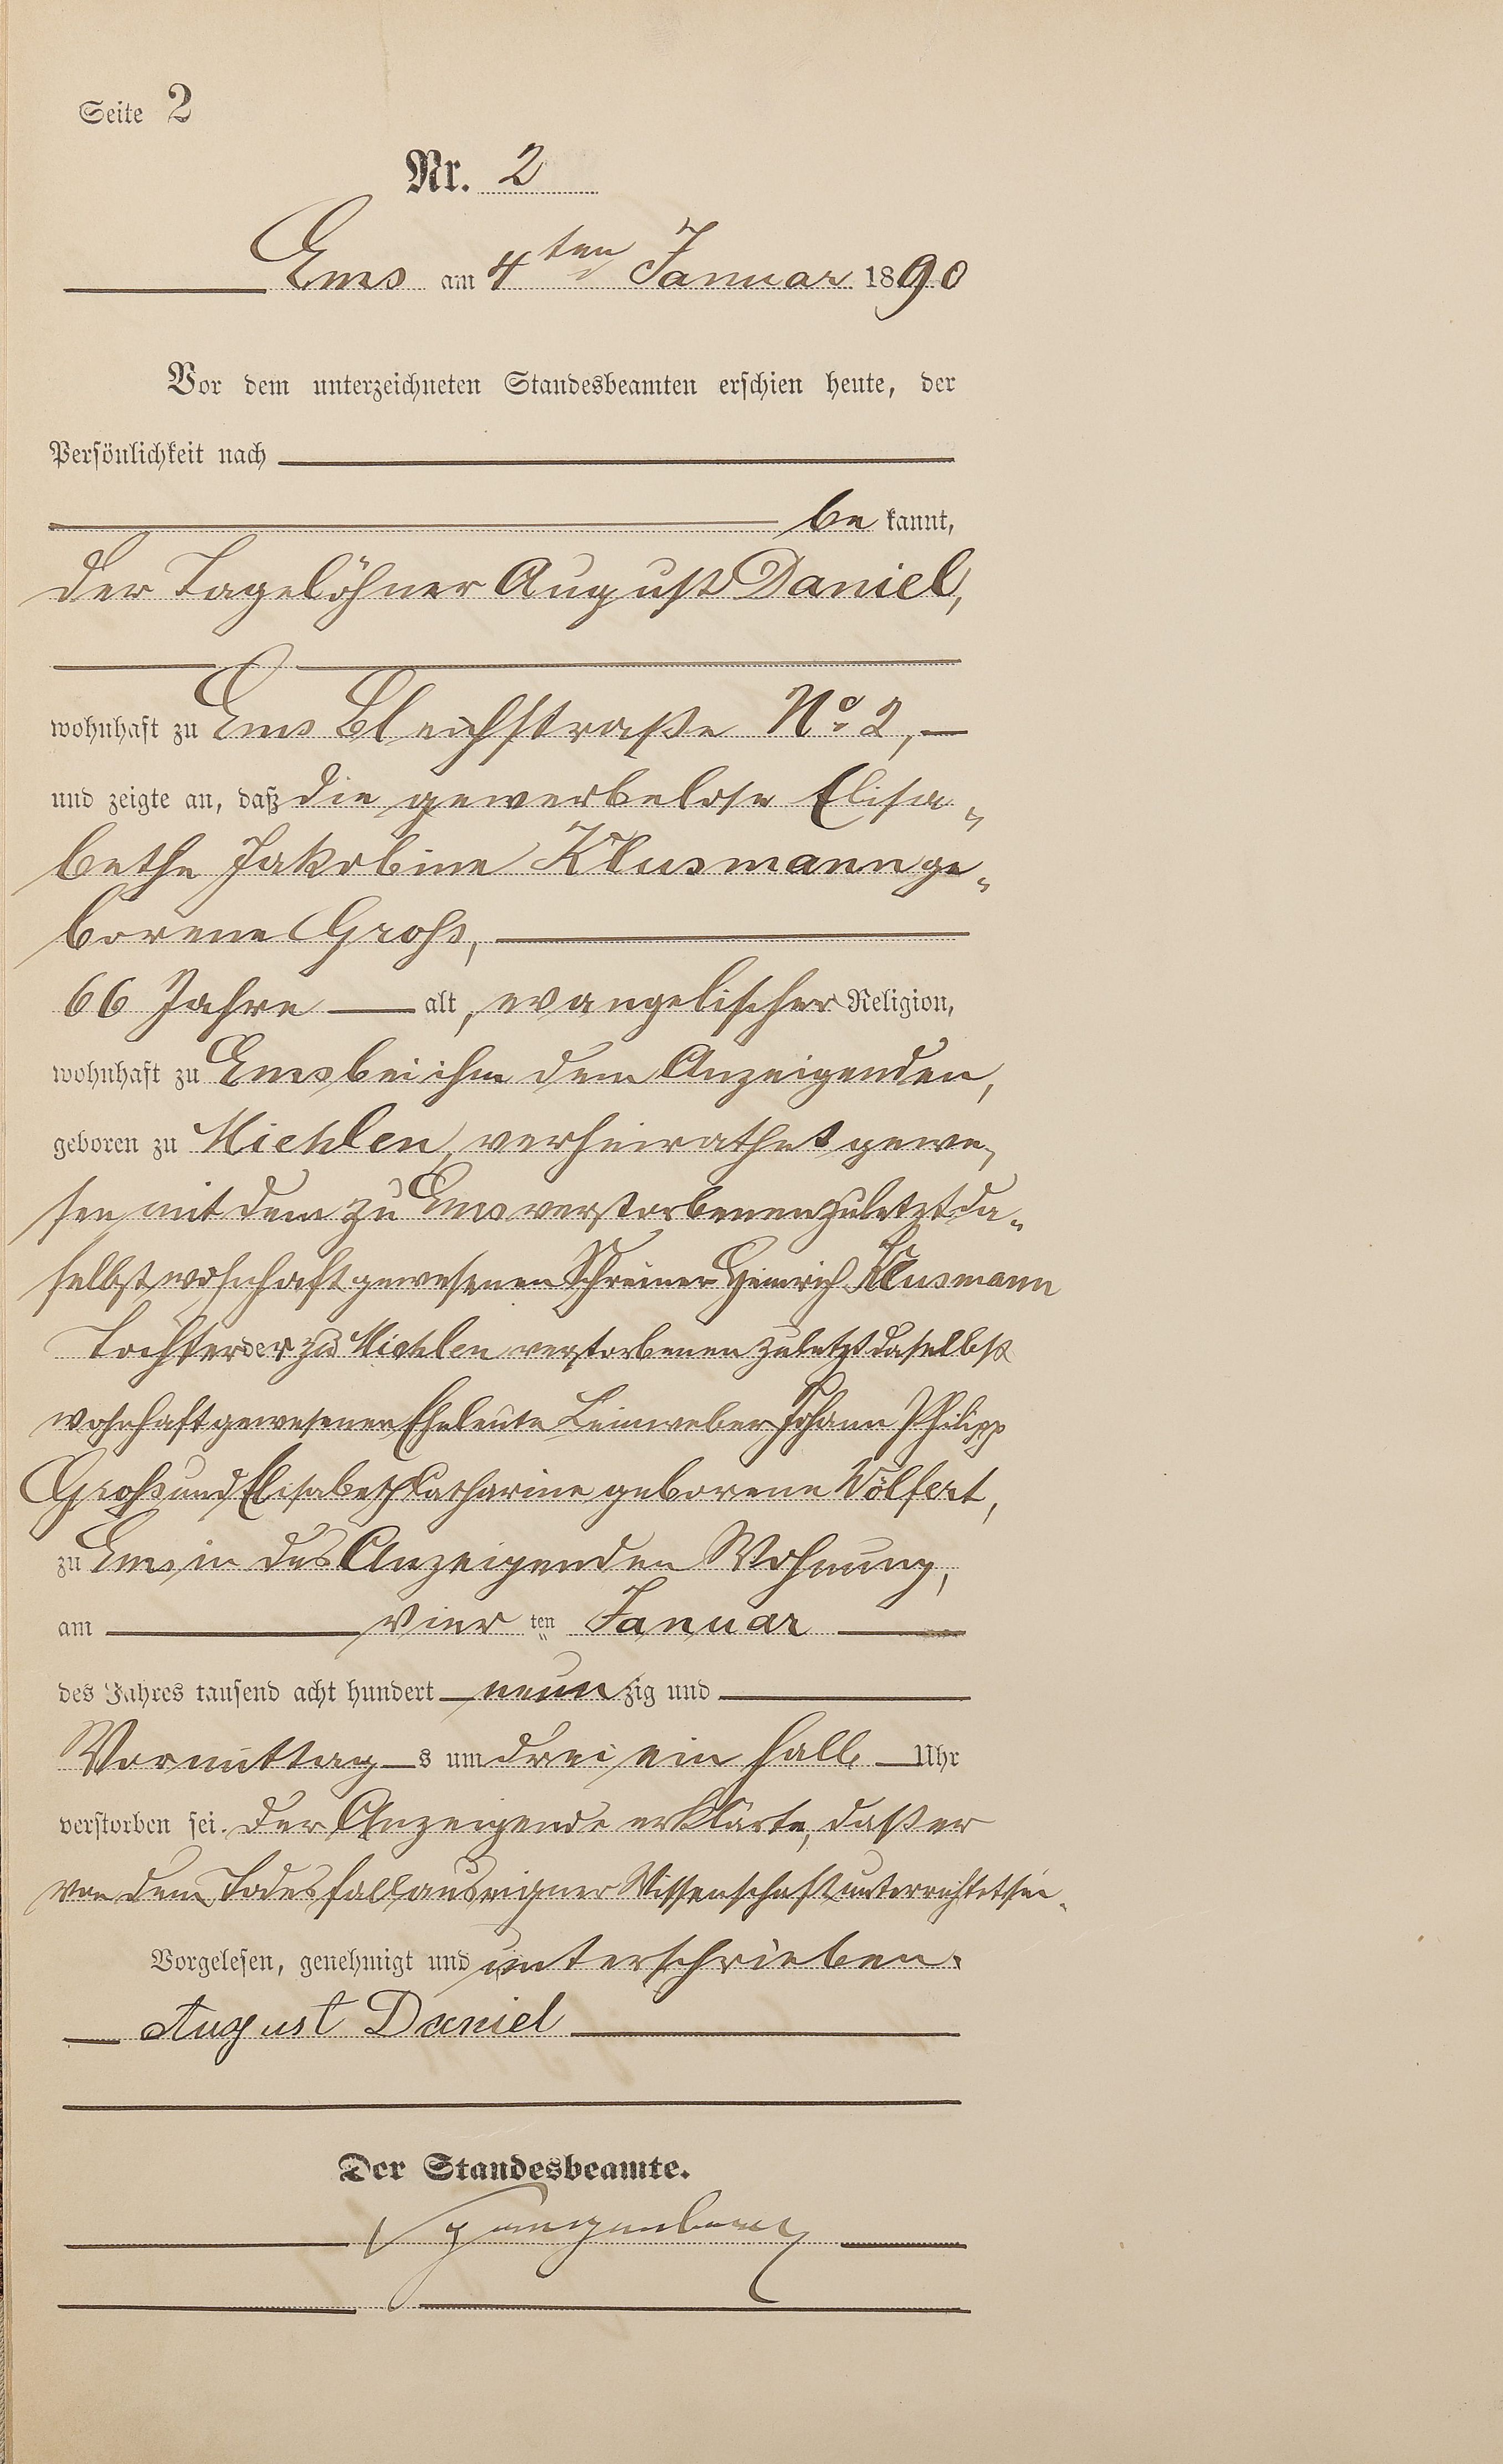 Seite 2
Nr. 2
Ems am 4ten Januar 1890
Vor dem unterzeichneten Standesbeamten erschien heute, der
Persönlichkeit nach
be kannt,
der Tagelöhner August Daniel,
wohnhaft zu Ems Bleichstraße No 2,
und zeigte an, daß die gewerbelose Elisa„
bethe Jakobine Klusmann ge„
borene Groß,
66 Jahre alt, evangelischer Religion,
wohnhaft zu Ems bei ihm dem Anzeigenden,
geboren zu Miehlen, verheirathet gewe„
sen mit dem zu Ems verstorbenen zuletzt da„
selbst wohnhaft gewesenen Schreiner Heinrich Klusmann
Tochter der zu Miehlen verstorbenen zuletzt daselbst
wohnhaft gewesenen Eheleute Leinweber Johann Philipp
Groß und Elisabeth Catharine geborene Wölfert,
zu Ems in des Anzeigenden Wohnung,
am vier ten Januar
des Jahres tausend acht hundert neun zig und
Vormittag s um drei ein halb Uhr
verstorben sei. Der Anzeigende erklärte, daß er
von dem Todesfall aus eigner Wissenschaft unterrichtet sei.
Vorgelesen, genehmigt und unterschrieben.
August Daniel
Der Standesbeamte.